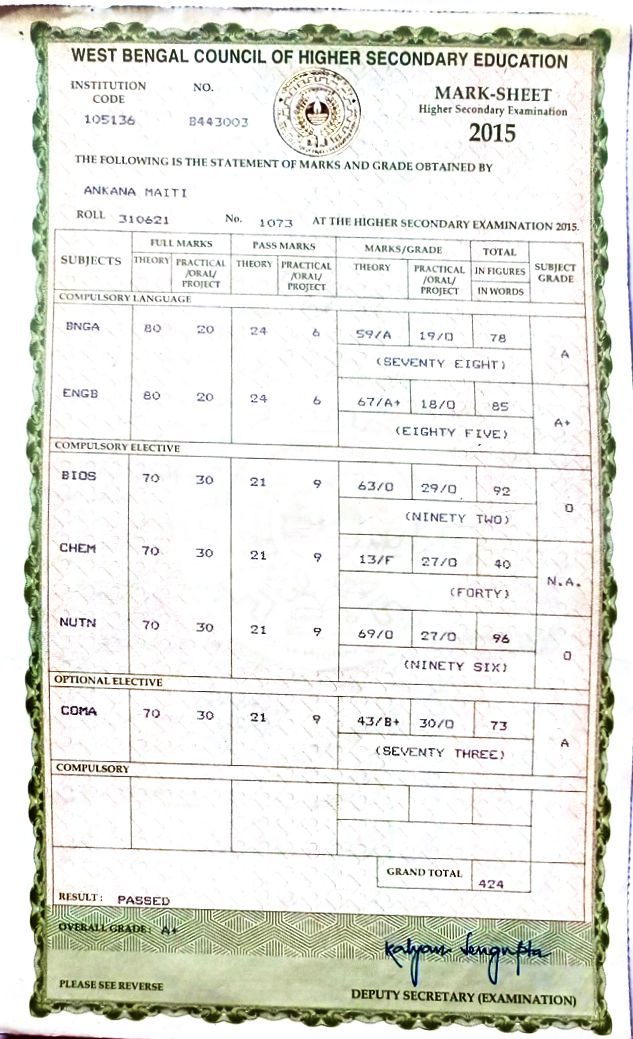 WEST BENGAL COUNCIL OF HIGHER SECONDARY EDUCATION
INSTITUTION CODE NO. MARK-SHEET
Higher Secondary Examination
105136 B443003 2015
THE FOLLOWING IS THE STATEMENT OF MARKS AND GRADE OBTAINED BY
ANKANA MAITI
ROLL 310621 No. 1073 AT THE HIGHER SECONDARY EXAMINATION 2015.
SUBJECTS FULL MARKS PASS MARKS MARKS/GRADE TOTAL SUBJECT GRADE
THEORY PRACTICAL /ORAL/ PROJECT THEORY PRACTICAL /ORAL/ PROJECT THEORY PRACTICAL /ORAL/ PROJECT IN FIGURES
IN WORDS
COMPULSORY LANGUAGE
BNGA 80 20 24 6 59/A 19/O 78 A
(SEVENTY EIGHT)
ENGB 80 20 24 6 67/A+ 18/O 85 A+
(EIGHTY FIVE)
COMPULSORY ELECTIVE
BIOS 70 30 21 9 63/O 29/O 92 O
(NINETY TWO)
CHEM 70 30 21 9 13/F 27/O 40 N.A.
(FORTY)
NUTN 70 30 21 9 69/O 27/O 96 O
(NINETY SIX)
OPTIONAL ELECTIVE
COMA 70 30 21 9 43/B+ 30/O 73 A
(SEVENTY THREE)
COMPULSORY
GRAND TOTAL 424
RESULT : PASSED
OVERALL GRADE : A+
Kalyan Sengupta
PLEASE SEE REVERSE DEPUTY SECRETARY (EXAMINATION)